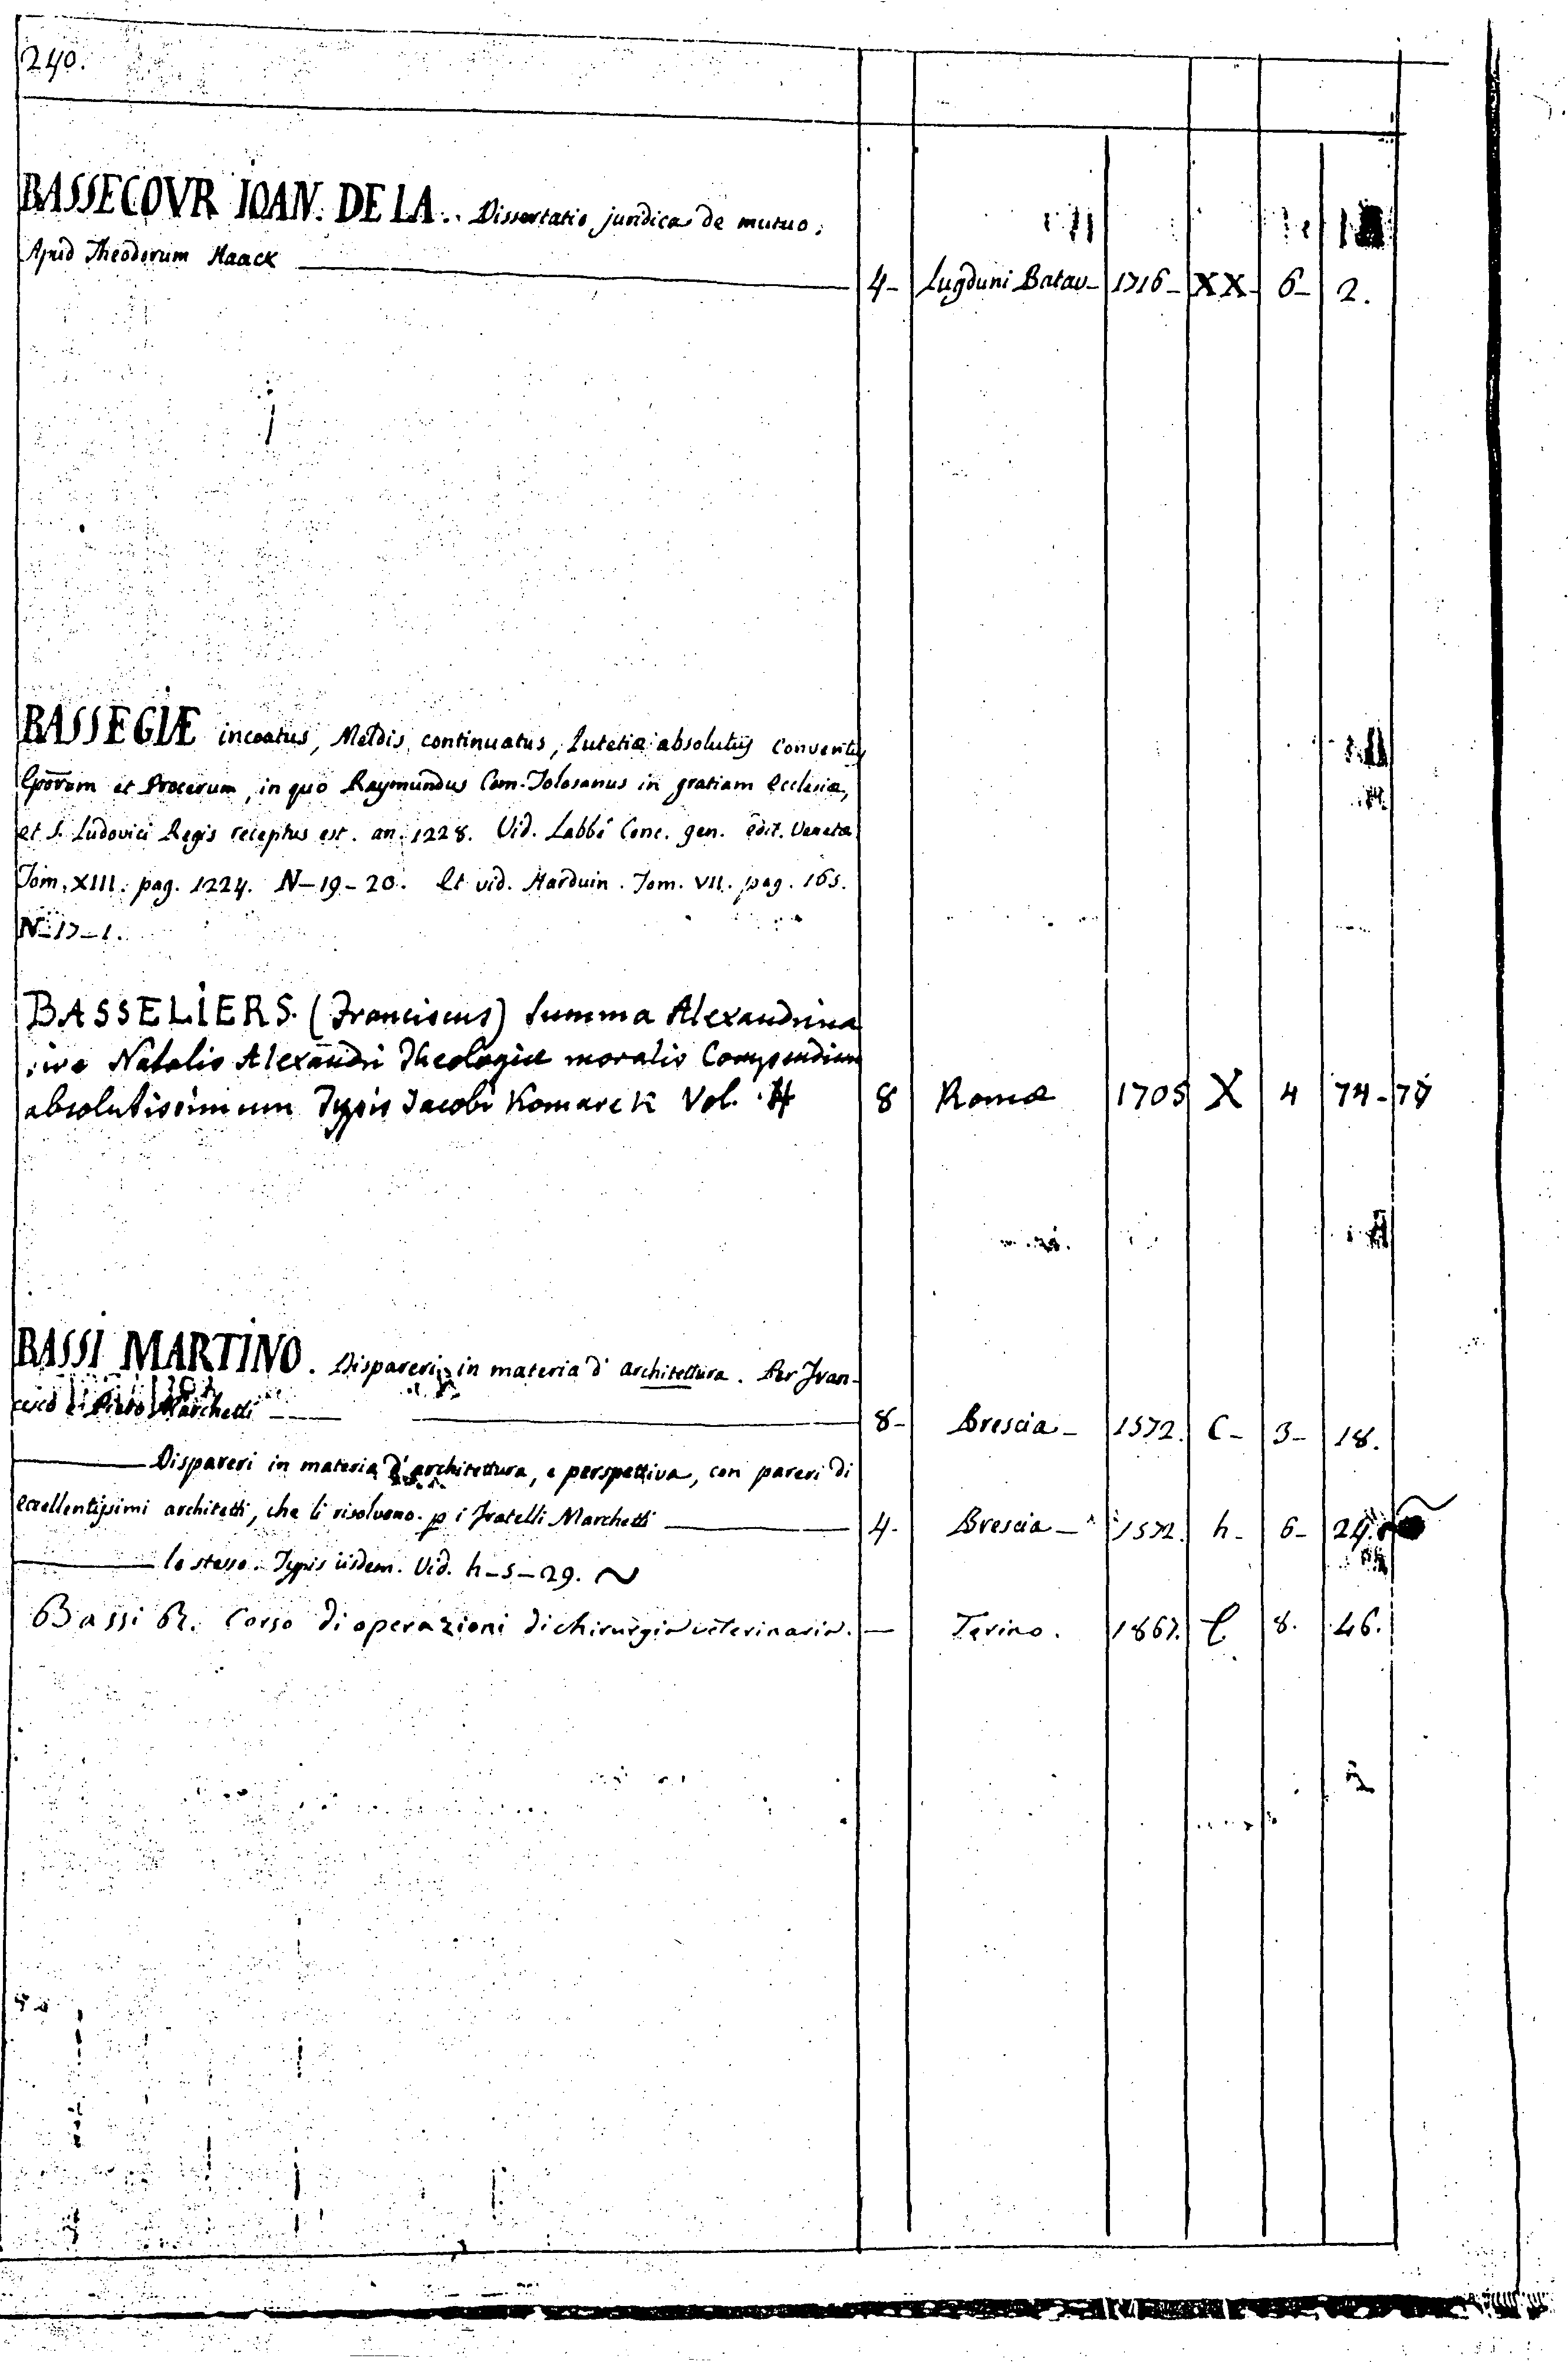 240.
BASSECOVR IOAN. DE LA.. Dissertatio juridica de mutuo.
Apud Theodorum Haack 4- Lugduni Batav- 1716- XX- 6- 2.
BASSEGIÆ incoatus, Meldis continuatus, Lutetiæ absolutus Conventus
Eporum et Procerum, in quo Raymundus Com. Tolosanus in gratiam Ecclesiæ,
et S. Ludovici Regis receptus est. an. 1228. Vid. Labbè Conc. gen. edit. Veneta
Tom. XIII. pag. 1224. N-19-20. Et vid. Harduin. Tom. VII. pag. 165.
N-17-1.
BASSELIERS. (Franciscus) Summa Alexandrina
sive Natalis Alexandri Theologiæ moralis Compendium
absolutissimum Typis Jacobi Komarek Vol. 8 Romæ 1705 X 4 74-
BASSI MARTINO. Dispareri in materia d'architettura. Per Fran-
cesco e Pietro Marchetti 8- Brescia- 1572. C- 3- 18.
Dispareri in materia d'architettura, e perspettiva, con pareri di
eccellentissimi architetti, che li risolvono. p i fratelli Marchetti 4- Brescia- 1572. h- 6- 24.
lo stesso. Typis iisdem. Vid. h-5-29.
Bassi R. Corso di operazioni di chirurgia veterinaria. — Torino. 1867. 8. 46.